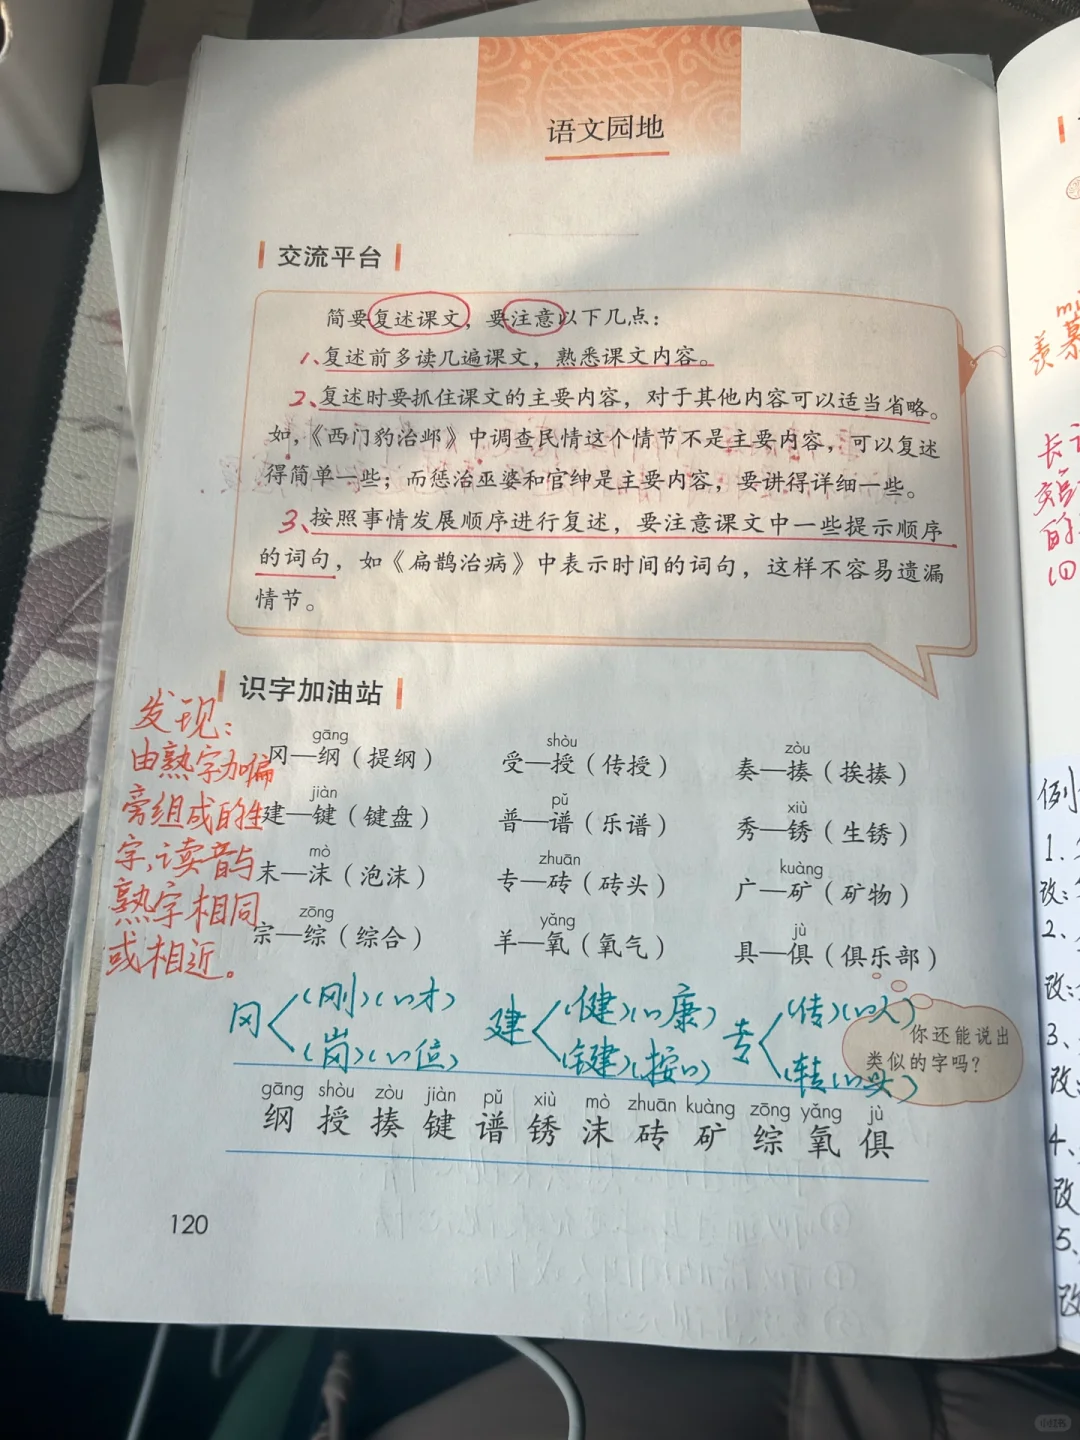 语文园地
交流平台
简要复述课文，要注意以下几点：
1、复述前多读几遍课文，熟悉课文内容。
2、复述时要抓住课文的主要内容，对于其他内容可以适当省略。
如，《西门豹治邺》中调查民情这个情节不是主要内容，可以复述
得简单一些；而惩治巫婆和官绅是主要内容，要讲得详细一些。
3、按照事情发展顺序进行复述，要注意课文中一些提示顺序
的词句，如《扁鹊治病》中表示时间的词句，这样不容易遗漏
情节。
识字加油站
发现：
由熟字加偏
旁组成的生
字，读音与
熟字相同
或相近。
gāng shòu zòu
冈—纲（提纲） 受—授（传授） 奏—揍（挨揍）
jiàn pǔ xiù
建—键（键盘） 普—谱（乐谱） 秀—锈（生锈）
mò zhuān kuàng
末—沫（泡沫） 专—砖（砖头） 广—矿（矿物）
zōng yǎng jù
宗—综（综合） 羊—氧（氧气） 具—俱（俱乐部）
冈 （刚）（刚才） 建 （健）（健康） 专 （传）（传人）
（岗）（岗位） （键）（按键） （转）（转头）
你还能说出
类似的字吗？
gāng shòu zòu jiàn pǔ xiù mò zhuān kuàng zōng yǎng jù
纲 授 揍 键 谱 锈 沫 砖 矿 综 氧 俱
120
羡慕
例
1、
改：
2、
改：
3、
改：
4、
改
5、
改
小红书